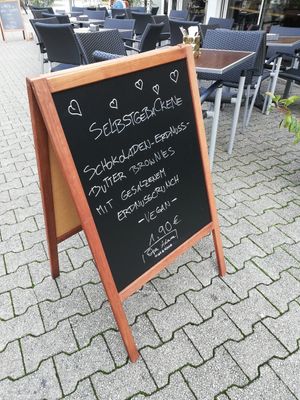 SELBSTGEBACKENE
SCHOKOLADEN-ERDNUSS-
BUTTER BROWNIES
MIT GESALZENEM
ERDNUSSCRUNCH
-VEGAN-
1.90 €